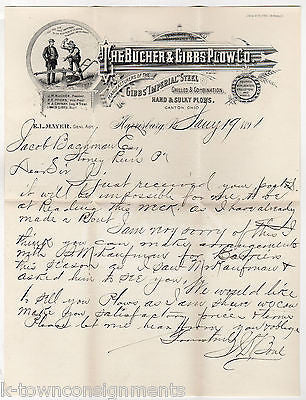 THE BUCHER & GIBBS PLOW CO.
MANUFACTURERS OF THE
GIBBS' IMPERIAL STEEL
CHILLED & COMBINATION
HAND & SULKY PLOWS.
CANTON, OHIO.
E.L. MAYER, Gen'l Agt.
Jany 19 1891
Jacob Bachman Esq
Stoney Run Pa
Dear Sir
I Just received your postal
it will be impossible for me to be
at Reading this week as I have already
made a
I am very sorry of this I
think you can make arrangements
with
this season as I saw Mr Kaufman &
asked him to see you
We would like
to sell you Plows as I am sure we can
make you satisfactory prices & terms
Please let me hear from you & oblige
Yours truly
k-townconsignments